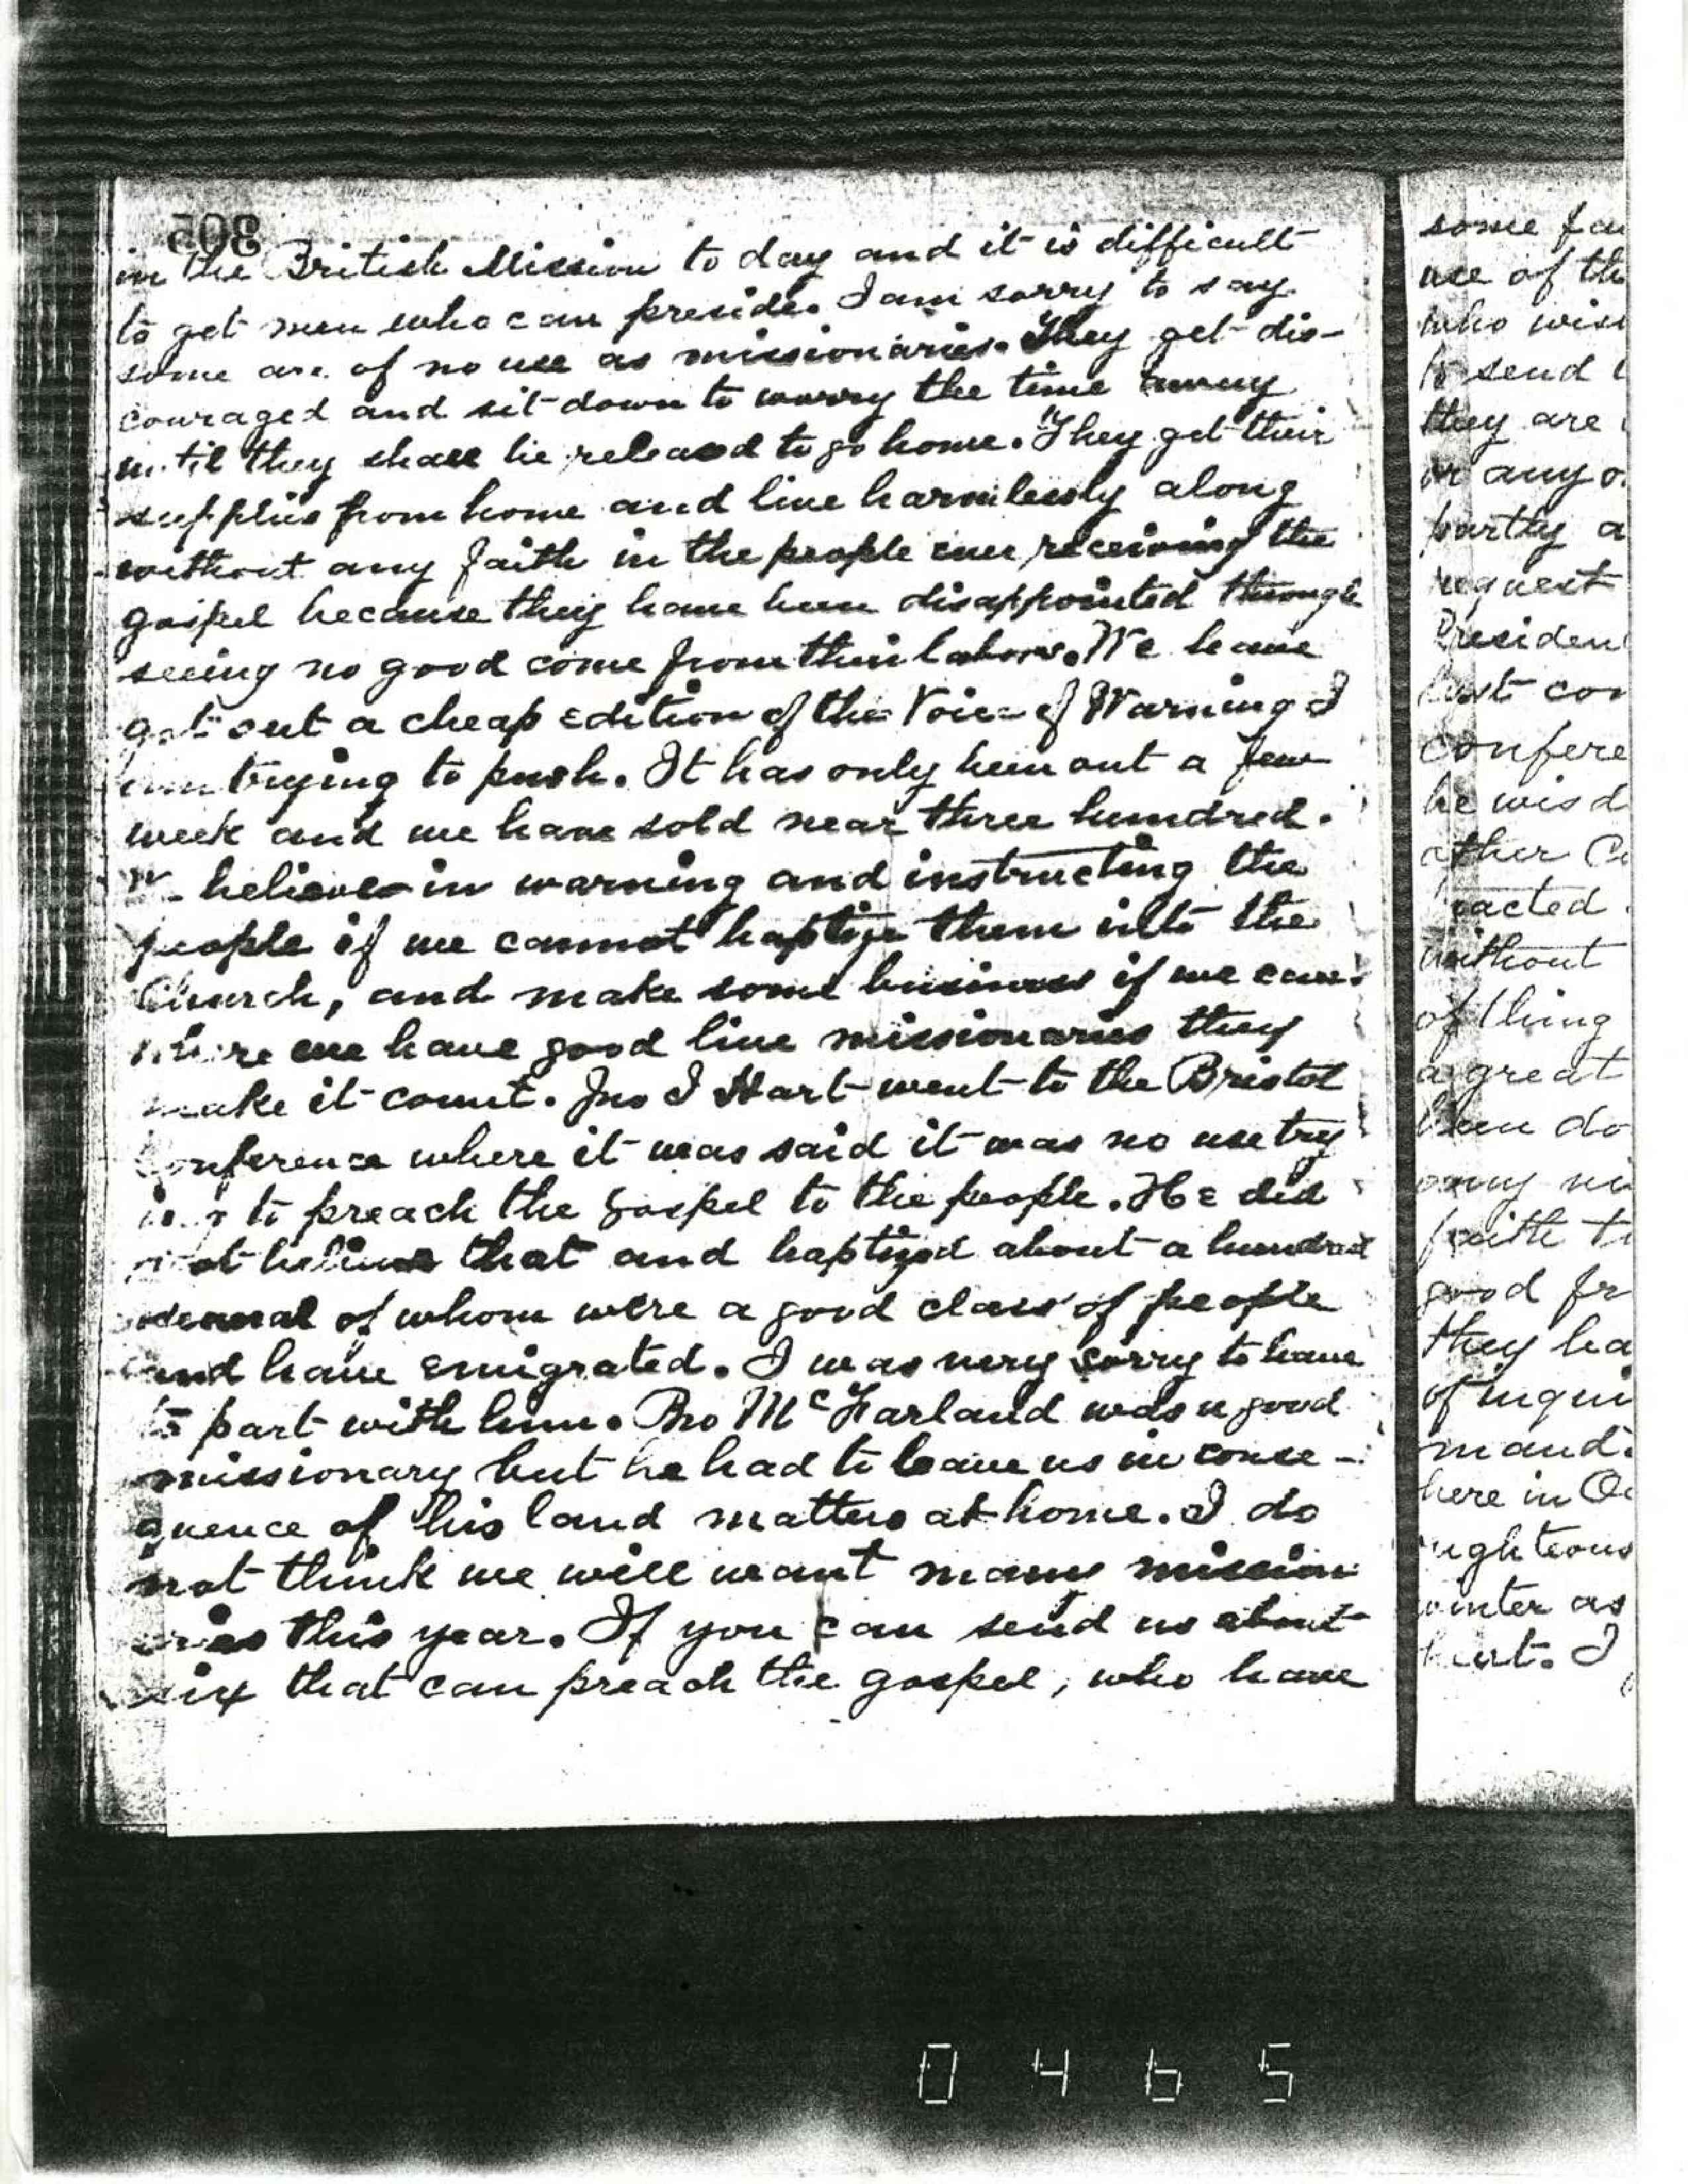 305
in the British Mission to day and it is difficult
to get men who can preside. I am sorry to say
some are of no use as missionaries. They get dis-
couraged and sit down to worry the time away
until they shall be released to go home. They get their
supplies from home and live harmlessly along
without any faith in the people ever receiving the
gospel because they have been disappointed through
seeing no good come from their labors. We have
got out a cheap edition of the Voice of Warning I
am trying to push. It has only been out a few
week and we have sold near three hundred.
We believe in warning and instructing the
people if we cannot baptize them into the
Church, and make some business if we can.
where we have good live missionaries they
make it count. Jno I Hart went to the Bristol
Conference where it was said it was no use try
ing to preach the gospel to the people. He did
not believe that and baptized about a hundred
several of whom were a good class of people
and have emigrated. I was very sorry to have
to part with him. Bro McFarland was a good
missionary but he had to leave us in conse-
quence of his land matters at home. I do
not think we will want many mission
aries this year. If you can send us about
six that can preach the gospel, who have
some
use of th
who wis
to send
they are
or any o
partly a
request
Presiden
last con
confere
he wis d
other C
acted
without
of thing
a great
been do
any
faith t
good fr
they ha
of inqui
mand
here in O
righteous
winter as
hurt. I
0465